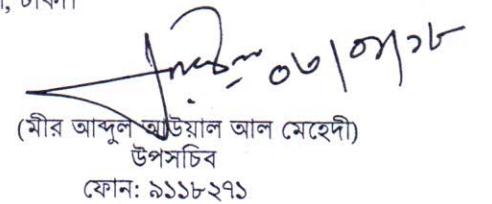 ঢাকা।
০৬/০৭/১৮
(মীর আব্দুল আউয়াল আল মেহেদী)
উপসচিব
ফোন: ৯১১৮২৭১